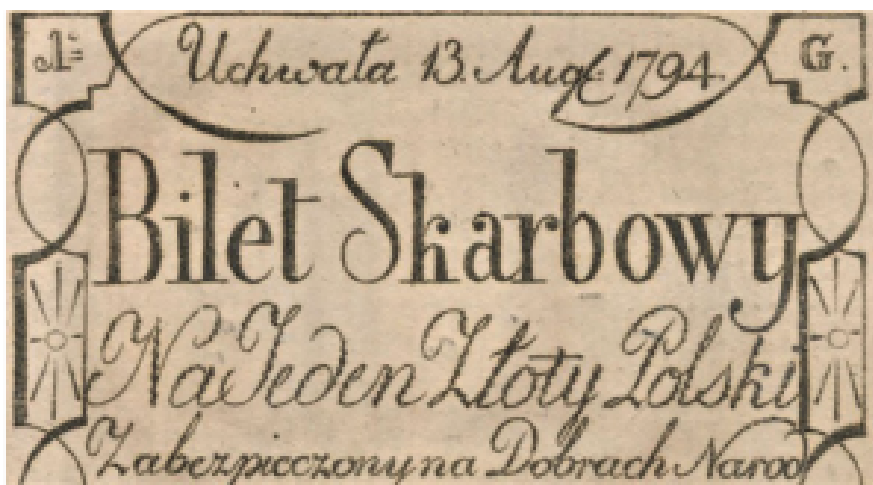 1: G.
Uchwała 13. Aug: 1794.
Bilet Skarbowy
Na Jeden Złoty Polski
Zabezpieczony na Dobrach Narod